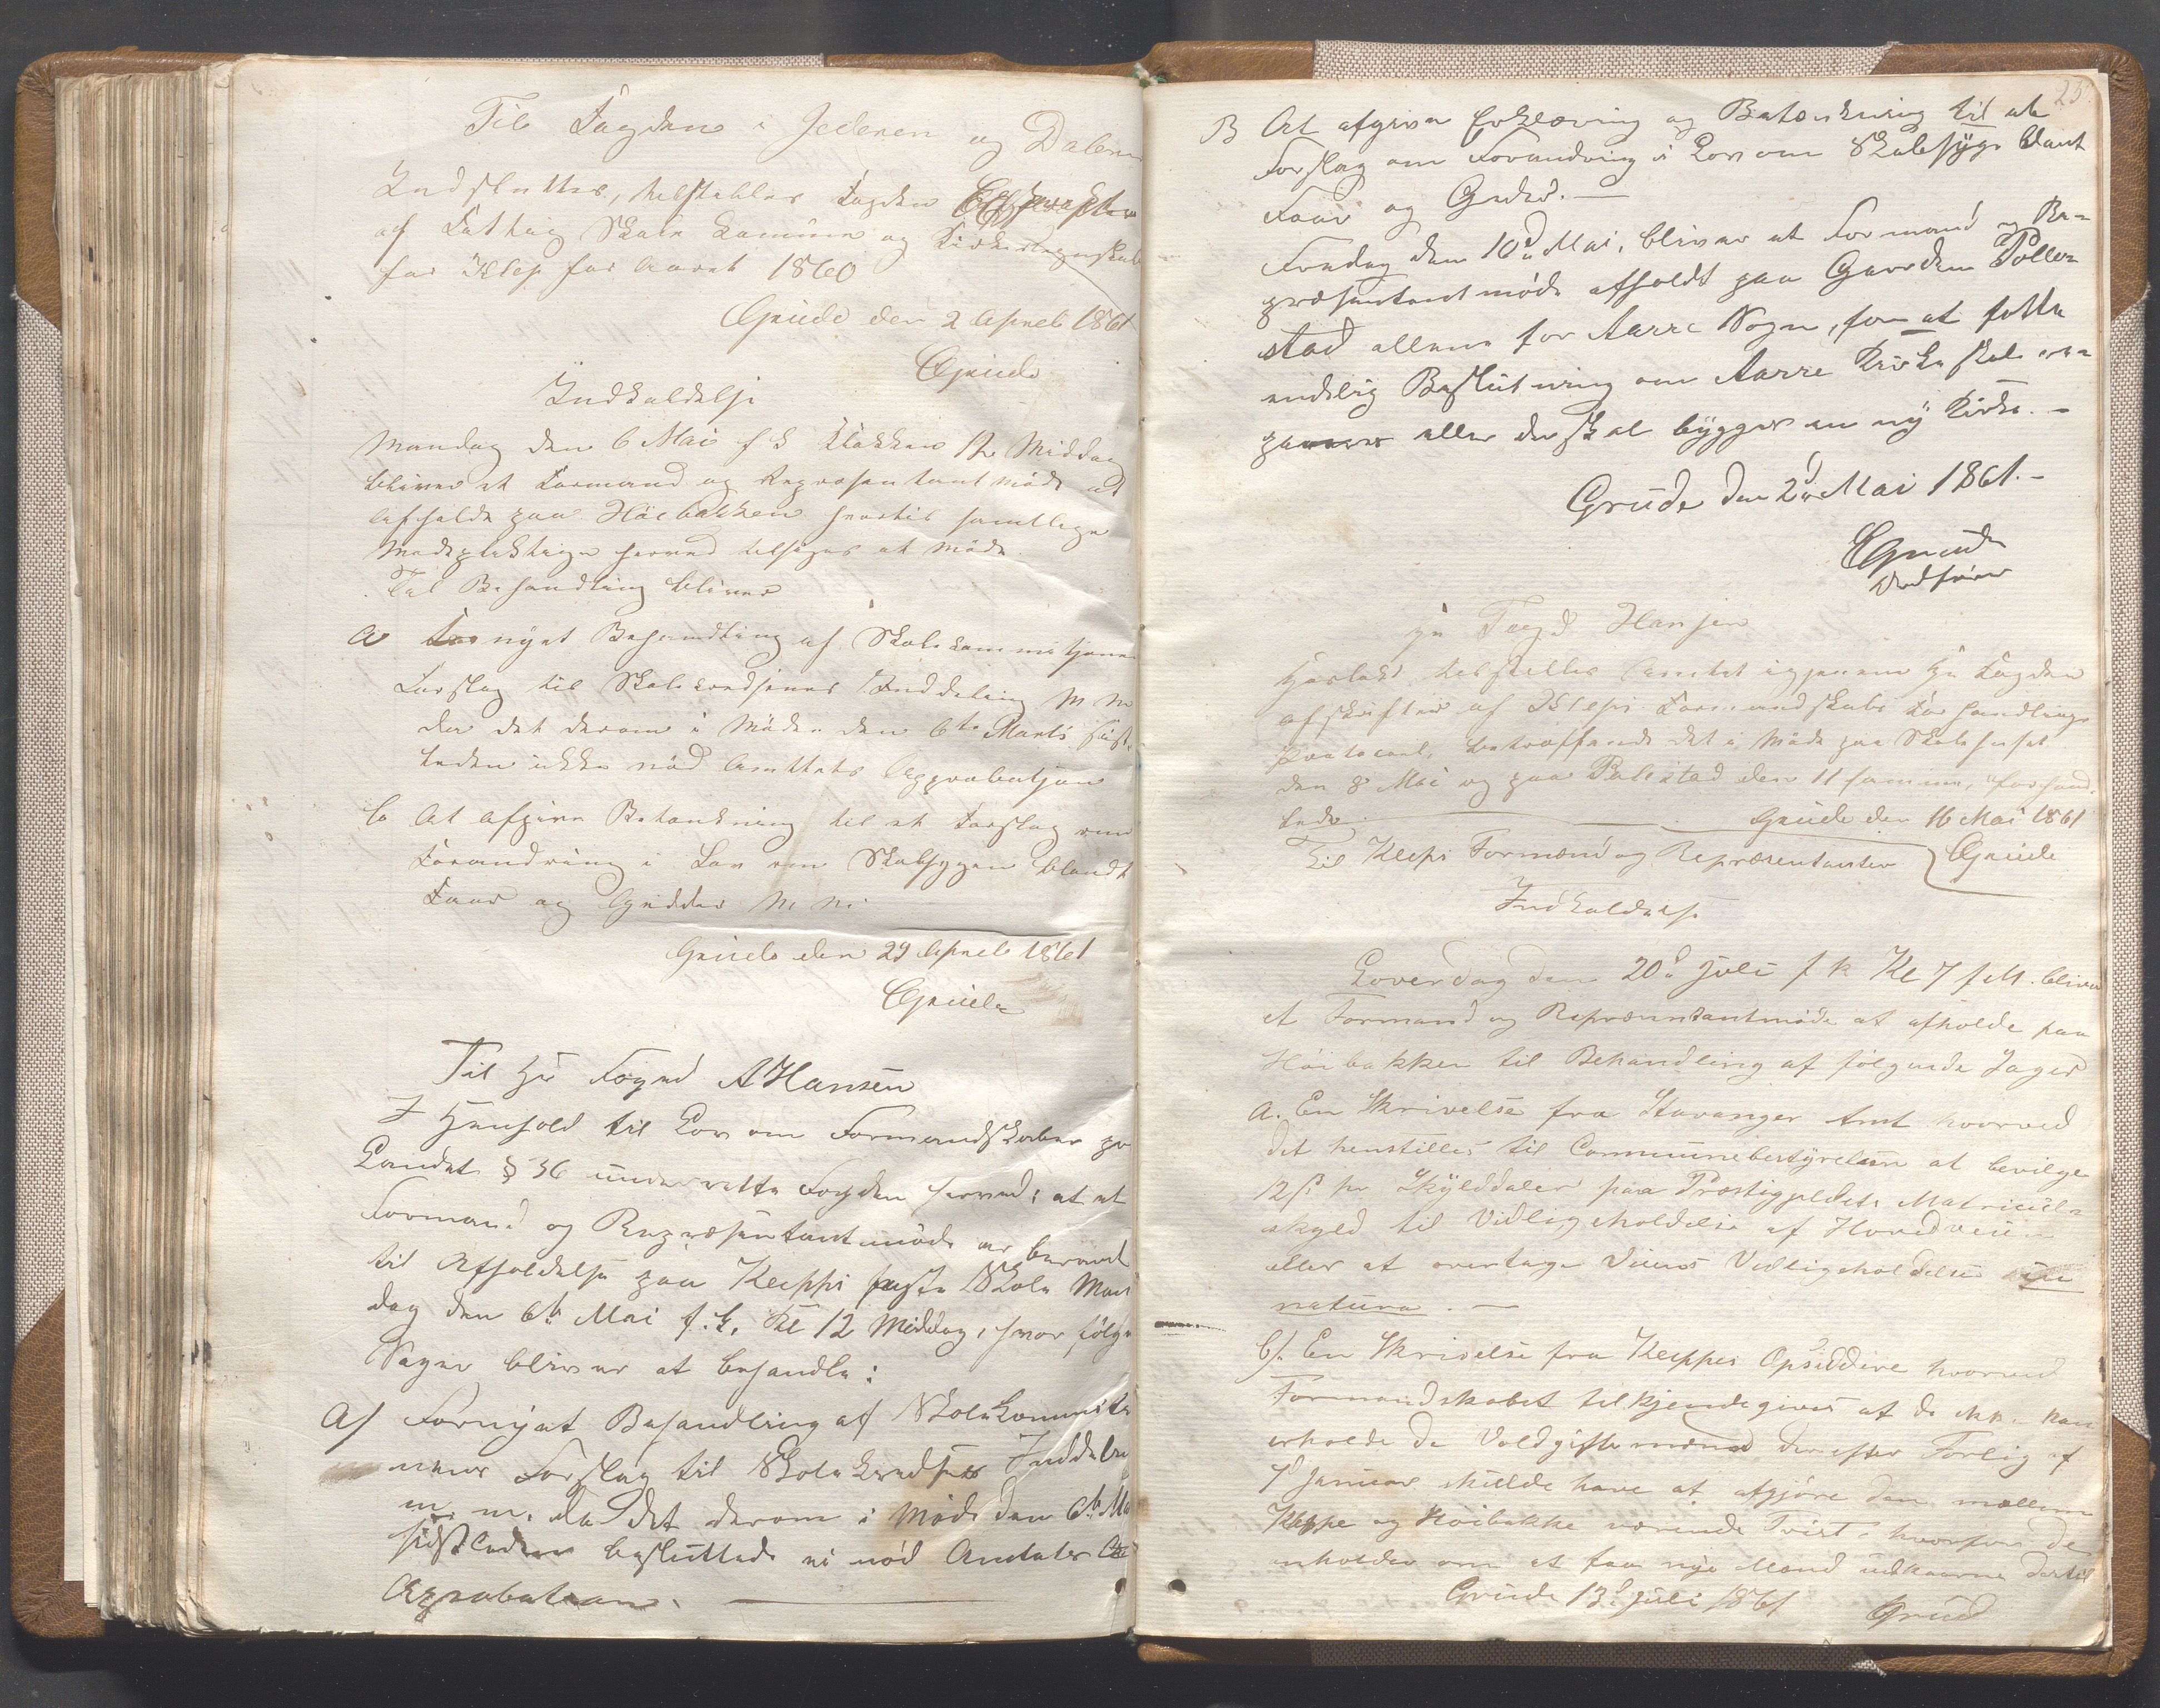 Til Fogden i Jederen og Dalerne
Indsluttes, tilstilles Fogden
af Fattig Skole Comune og Kirkeregnskab
for Klep for Aaret 1860
Grude den 2 April 1861
Grude
Indkaldelse
Mandag den 6 Mai f k Klokken 12 Middag
bliver et Formand og Repræsentantmøde at
afholde paa Höebakken hvortil samtlige
Mødepliktige herved tilsiges at møde.
Til Behandling bliver
a Fornyet Behandling af Skolekommitjonens
Forslag til Skolekredsenes Inddeling m m
da det derom i Møde den 6te Marts sidst-
leden ikke nød Amtets Approbatjon
b At afgive Betænkning til et Forslag om
Forandring i Lov om Skabsygen blandt
Faar og Gjedder m m.
Grude den 29 April 1861
Grude
Til Hr Foged A Hansen
I Henhold til Lov om Formandskaber paa
Landet § 36 underrettes Fogden herved, at et
Formand og Repræsentantmøde er berammet
til Afholdelse paa Kleppi faste Skole Man
dag den 6te Mai f. k. Kl 12 Middag, hvor følgende
Sager bliver at behandle:
A/ Fornyet Behandling af Skolekommite
nens Forslag til Skolekredsenes Inddeling
m. m. da det derom i Møde den 6te Ma
sidstleden besluttede ei nød Amtets
Approbation.
23
B At afgive Erklæring og Betænkning til et
Forslag om Forandring i Lov om Skabsyge blant
Faar og Geder. —
Fredag den 10de Mai, bliver et Formand og Re-
præsentantmøde afholdt paa Gaarden Polle-
stad allene for Aarre Sogn, for at fatte
endelig Beslutning om Aarre Kirke skal re-
pareres eller der skal bygges en ny Kirke. –
Grude den 2den Mai 1861. –
E Grude
Ordfører
Hr Fogd Hansen
Hoslagt tilstilles Amtet igjennem Hr Fogden
afskrifter af Kleps Formandskabs Forhandlings
Protocol, betræffende det i Møde paa Skolehuset
den 8 Mai og paa Polestad den 11 samme, forhand-
lede. Grude den 16 Mai 1861
Til Klepi Formænd og Repræsentanter Grude
Indkaldelse
Loverdag den 20de Juli f k Kl 7 f M. bliver
et Formand og Repræsentantmøde at afholde paa
Höibakken til Behandling af følgende Sager
a. En Skrivelse fra Stavanger Amt hvorved
det henstilles til Communebestyrelsen at bevilge
12 ß pr Skylddaler paa Præstigjeldets Matricul-
skyld til Vidligeholdelse af Hovedveien
eller at overtage Veiens Vedligeholdelse in
natura. —
b/. En Skrivelse fra Kleppes Opsiddere hvorved
Formandskabet tilkjendegives at de ikke kan
erholde de Voldgiftsmænd der efter Forlig af
7de Januar skulde have at afgjöre den mellem
Kleppe og Höibakke værende Tvist, hvorfor de
anholder om at faa nye Mænd udkaarne dertil
Grude 13de Juli 1861 Grude